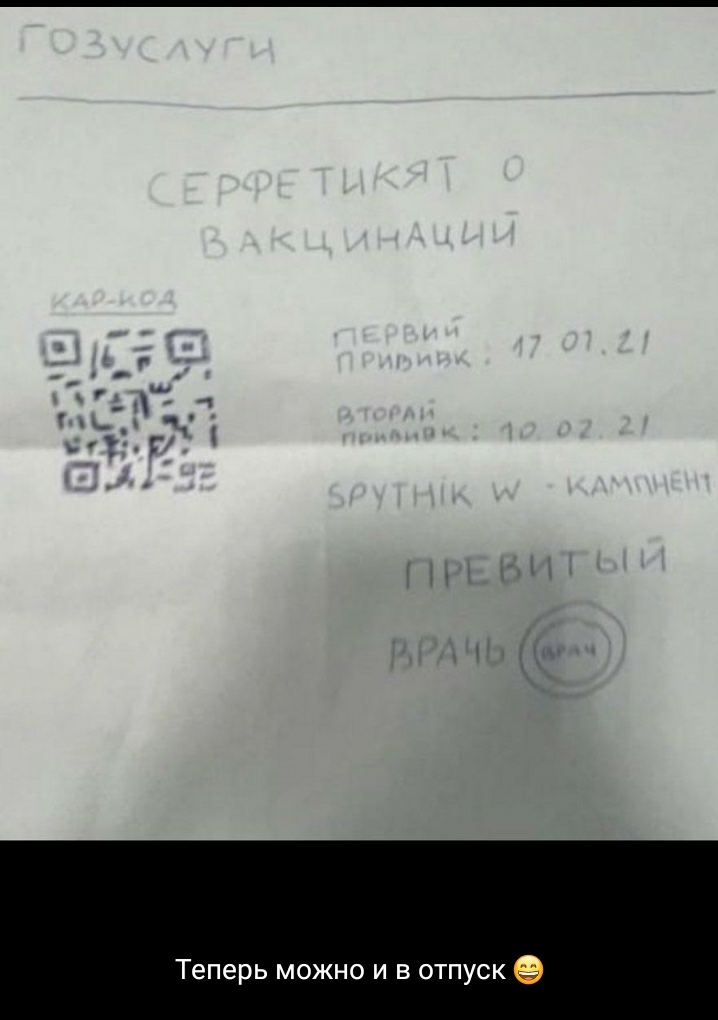 ГОЗУСЛУГИ
СЕРФЕТИКЯТ О
ВАКЦИНАЦИЙ
КАР-КОД
ПЕРВИЙ
ПРИВИВК : 17.01.21
ВТОРАЙ
ПРИВИВК : 10.02.21
SPYTHIK W - КАМПНЕНТ
ПРЕВИТЫЙ
ВРАЧЬ ВРАЧ
Теперь можно и в отпуск 😄